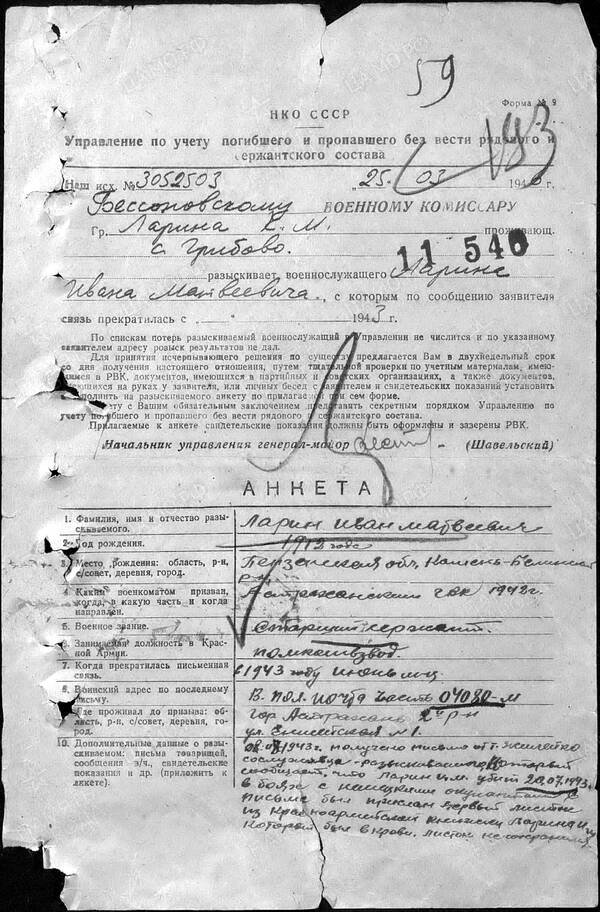 59
Форма № 9
НКО СССР
Управление по учету погибшего и пропавшего без вести рядового и
сержантского состава
193
Наш исх. № 3052503 „25“ 03 1946 г.
Бессоновскому ВОЕННОМУ КОМИССАРУ
Гр. Ларина Е. М. проживающ.
с. Грибово.
11546
разыскивает военнослужащего Ларина
Ивана Матвеевича, с которым по сообщению заявителя
связь прекратилась с 1943 г.
По спискам потерь разыскиваемый военнослужащий Управления не числится и по указанному
заявителем адресу розыск результатов не дал.
Для принятия исчерпывающего решения по существу предлагается Вам в двухнедельный срок
со дня получения настоящего отношения, путем тщательной проверки по учетным материалам, имею-
щимся в РВК, документов, имеющихся в партийных и советских организациях, а также документов,
имеющихся на руках у заявителя, или личных бесед с заявителем и свидетельских показаний установить
заполнить на разыскиваемого анкету по прилагаемой при сем форме.
Анкету с Вашим обязательным заключением представить секретным порядком Управлению по
учету погибшего и пропавшего без вести рядового и сержантского состава.
Прилагаемые к анкете свидетельские показания должны быть оформлены и заверены РВК.
Начальник управления генерал-майор (Шавельский)
АНКЕТА
1. Фамилия, имя и отчество разы-
скиваемого.
Ларин Иван Матвеевич
2. Год рождения.
1912 года
3. Место рождения: область, р-н,
с/совет, деревня, город.
Пензенская обл. Камень-Белинский
р-н
4. Каким военкоматом призван,
когда, в какую часть и когда
направлен.
Астраханским гвк 1942 г.
5. Военное звание.
Старший сержант.
6. Занимаемая должность в Крас-
ной Армии.
помкомвзвод.
7. Когда прекратилась письменная
связь.
в 1943 году июнь м-ц
8. Воинский адрес по последнему
письму.
В. пол. почта часть 04080-м
9. Где проживал до призыва: об-
ласть, р-н, с/совет, деревня, го-
род.
гор Астрахань 2й р-н
ул. Енисейская № 1.
10. Дополнительные данные о разы-
скиваемом: письма товарищей,
сообщения э/ч., свидетельские
показания и др. (приложить к
анкете).
1943 г. получено письмо от т.
сослуживца - разыскиваемого который
сообщает, что Ларин И.М. убит 20.07.1943 г.
в боях с немецкими оккупантами. в
письме был прислан первый листок
из Красноармейской книжки Ларина И.М
который был в крови. листок не сохранился